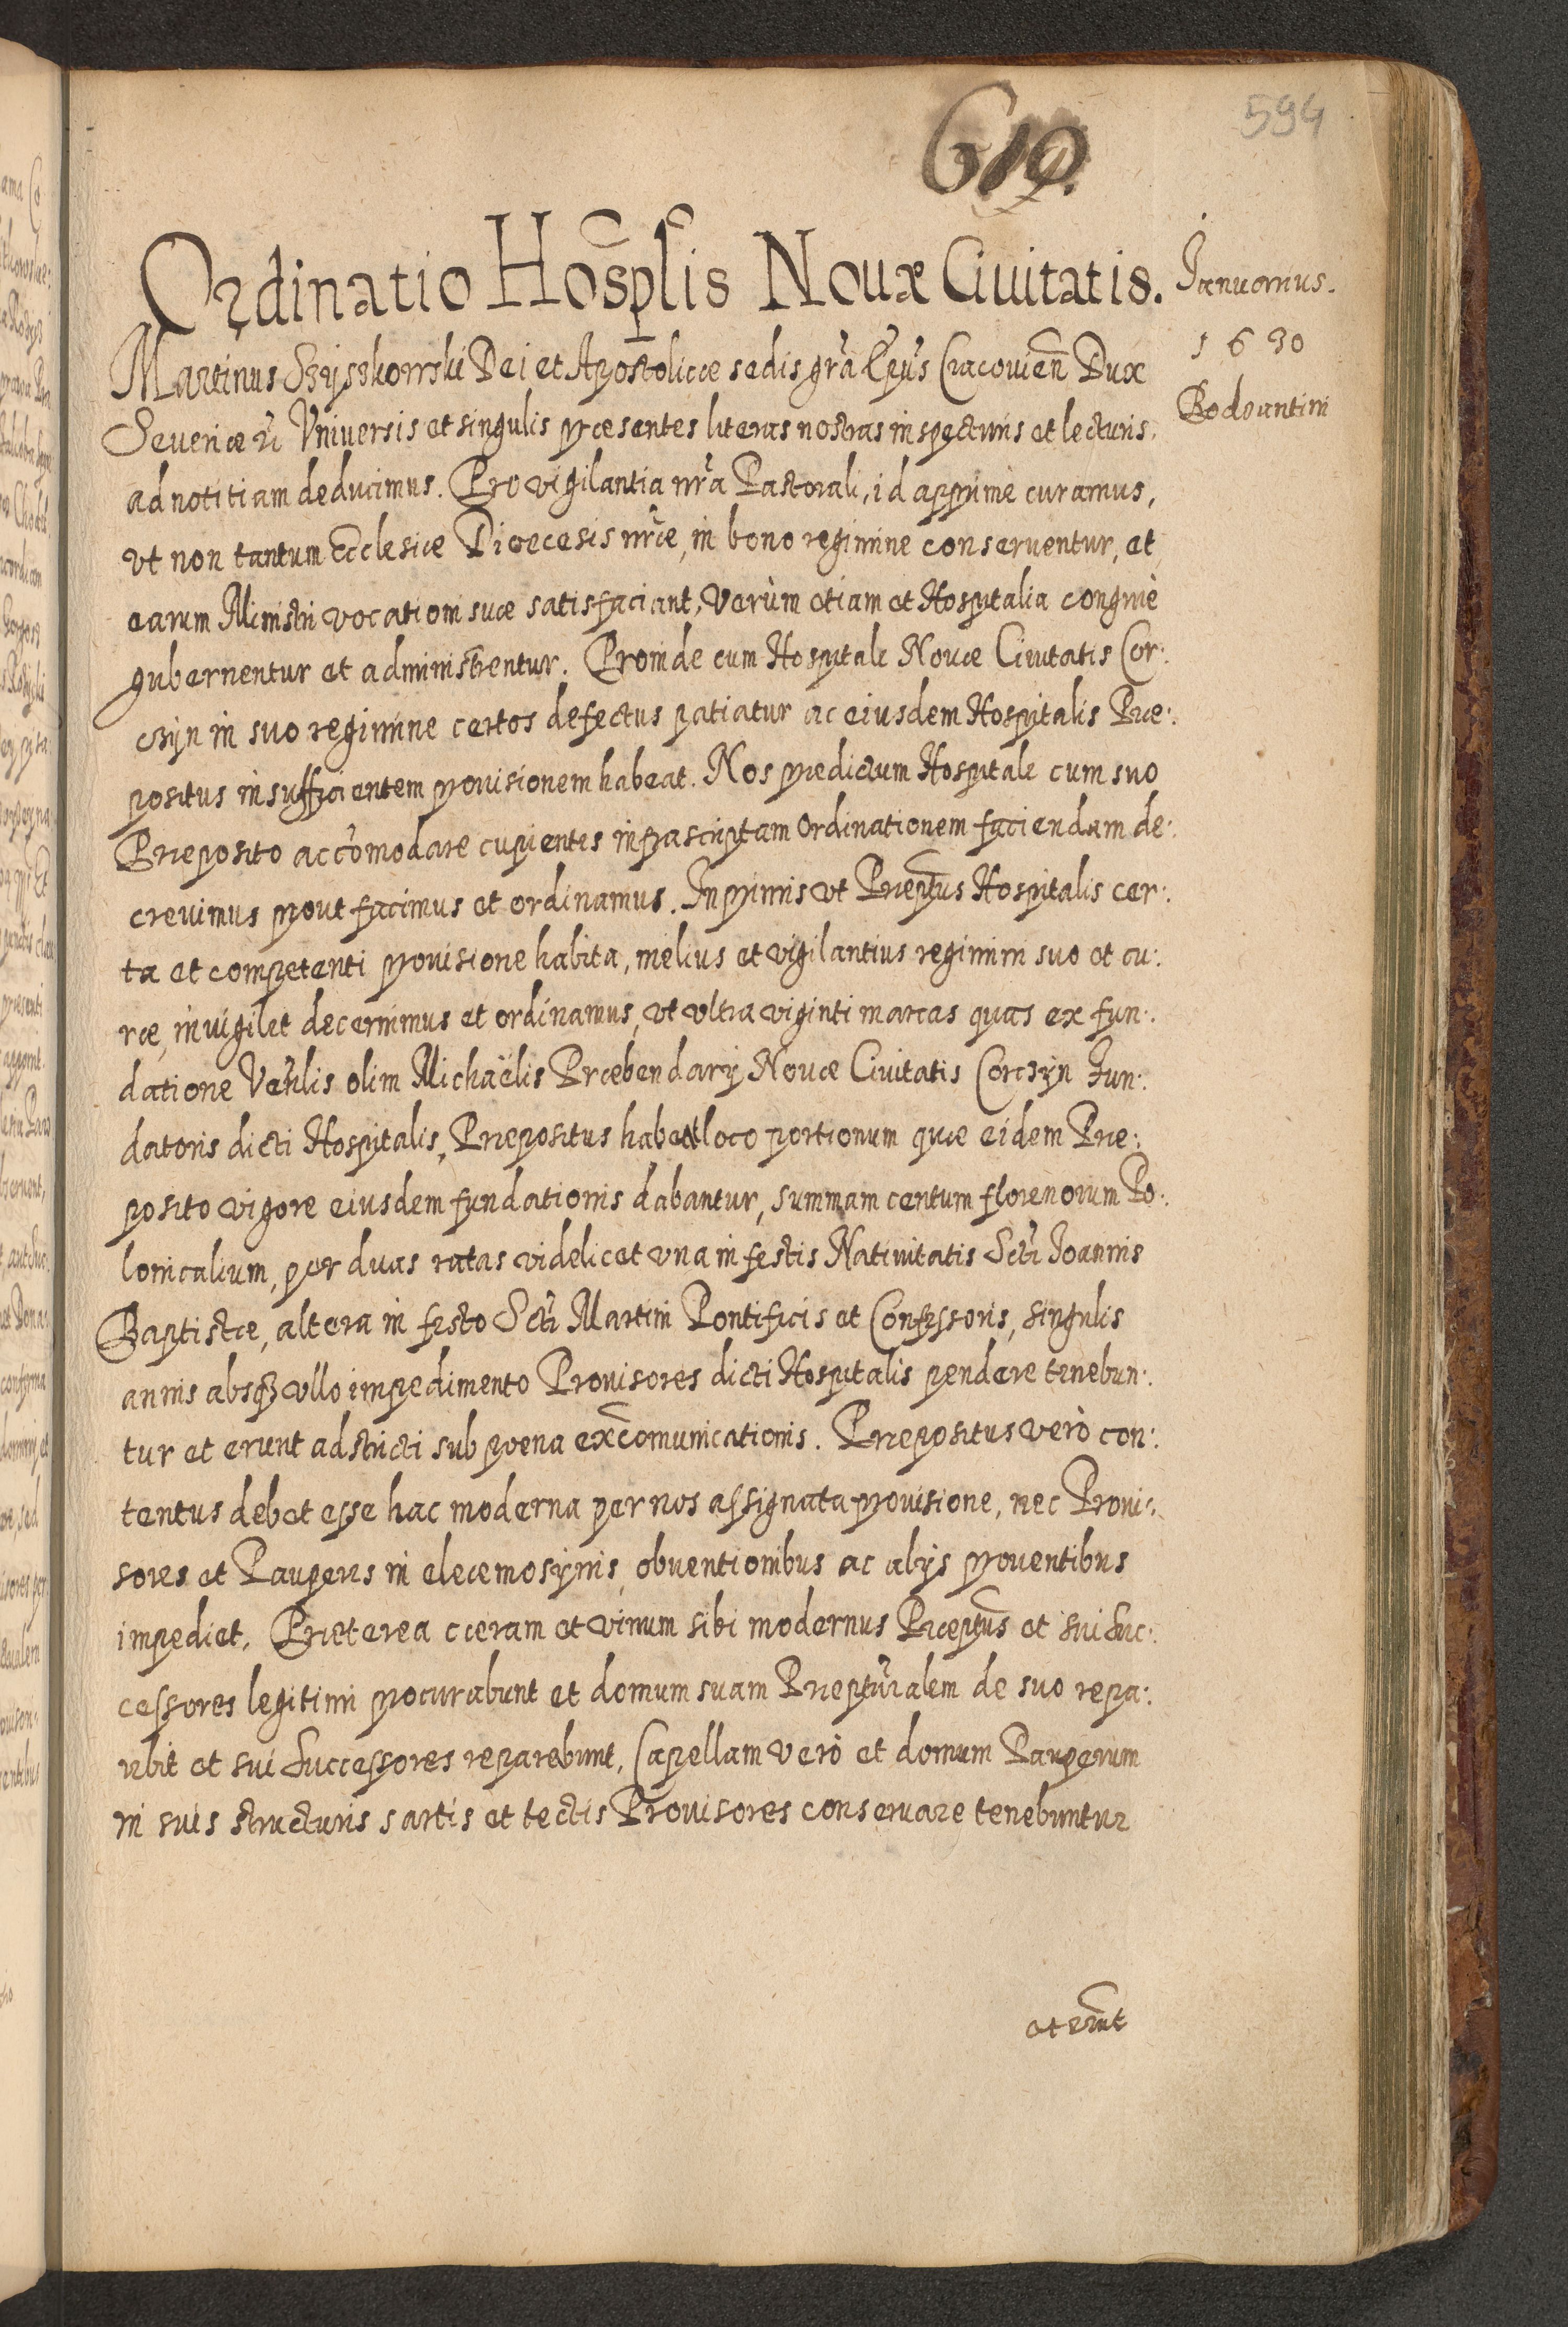 594
619.
Ordinatio Hosplis Nouæ Ciuitatis.
Januarius.
1630
Bodzantini
Martinus Szyszkowski Dei et Apostolicæ sedis gra Epus Cracovien Dux
Severiæ Vniversis et singulis præsentes literas nostras inspecturis et lecturis.
ad notitiam deducimus. Pro vigilantia nra Pastorali, id apprime curamus,
vt non tantum Ecclesiæ Dioecesis nræ, in bono regimine conserventur, et
earum Ministri vocationi suæ satisfaciant, Verùm etiam et Hospitalia congruè
gubernentur et administrentur. Proinde cum Hospitale Nouæ Ciuitatis Cor:
czyn in suo regimine certos defectus patiatur ac eiusdem Hospitalis Præ:
positus insufficientem prouisionem habeat. Nos predictum Hospitale cum suo
Præposito accomodare cupientes infrascriptam Ordinationem faciendam de:
crevimus prout facimus et ordinamus. Inprimis vt Præptus Hospitalis cer:
ta et competenti prouisione habita, melius et vigilantius regimini suo et cu:
ræ, inuigilet decernimus et ordinamus, vt vltra viginti marcas quas ex fun:
datione Venlis olim Michaëlis Præbendarij Nouæ Ciuitatis Corczyn Fun:
datoris dicti Hospitalis, Præpositus habeat loco portionum quæ eidem Præ:
posito vigore eiusdem fundationis dabantur, summam centum florenorum Po:
lonicalium, per duas ratas videlicet vna in festis Natiuitatis Scti Joannis
Baptistæ, altera in festo Scti Martini Pontificis et Confessoris, singulis
annis absq3 vllo impedimento Prouisores dicti Hospitalis pendere tenebun:
tur et erunt adstricti sub poena excomunicationis. Præpositus verò con:
tentus debet esse hac moderna per nos assignata prouisione, nec Proui:
sores et Pauperes in eleemosynis, obuentionibus ac alijs prouentibus
impediet. Præterea cæram et vinum sibi modernus Præptus et sui Suc:
cessores legitimi procurabunt et domum suam Præpturalem de suo repa:
rabit et sui Successores reparebunt. Capellam verò et domum Pauperum
in suis structuris sartis et tectis Prouisores conseruare tenebuntur
et erunt